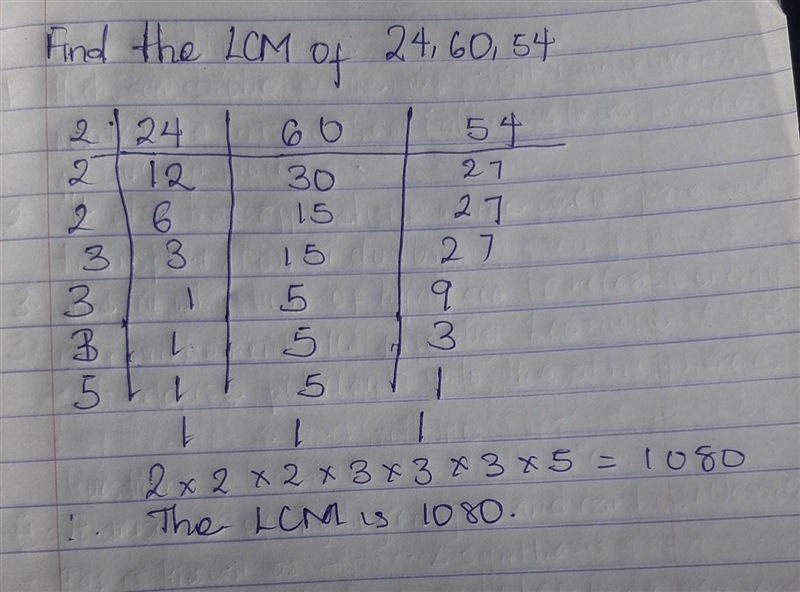 Find the LCM of 24, 60, 54
2 24 60 54
2 12 30 27
2 6 15 27
3 3 15 27
3 1 5 9
3 1 5 3
5 1 5 1
1 1 1
2 × 2 × 2 × 3 × 3 × 3 × 5 = 1080
∴ The LCM is 1080.